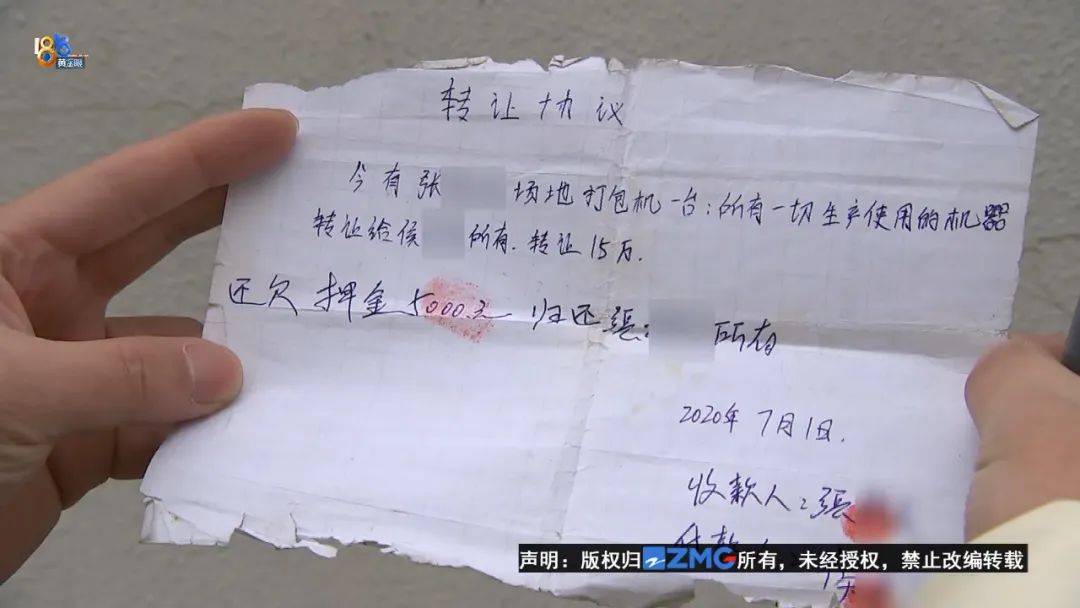 1818
黄金眼
转让协议
今有张 场地打包机一台；所有一切生产使用的机器
转让给侯 所有．转让15万．
还欠押金5000.元 归还張： 所有
2020年7月1日．
收款人：張
付款
声明：版权归ZMG所有，未经授权，禁止改编转载